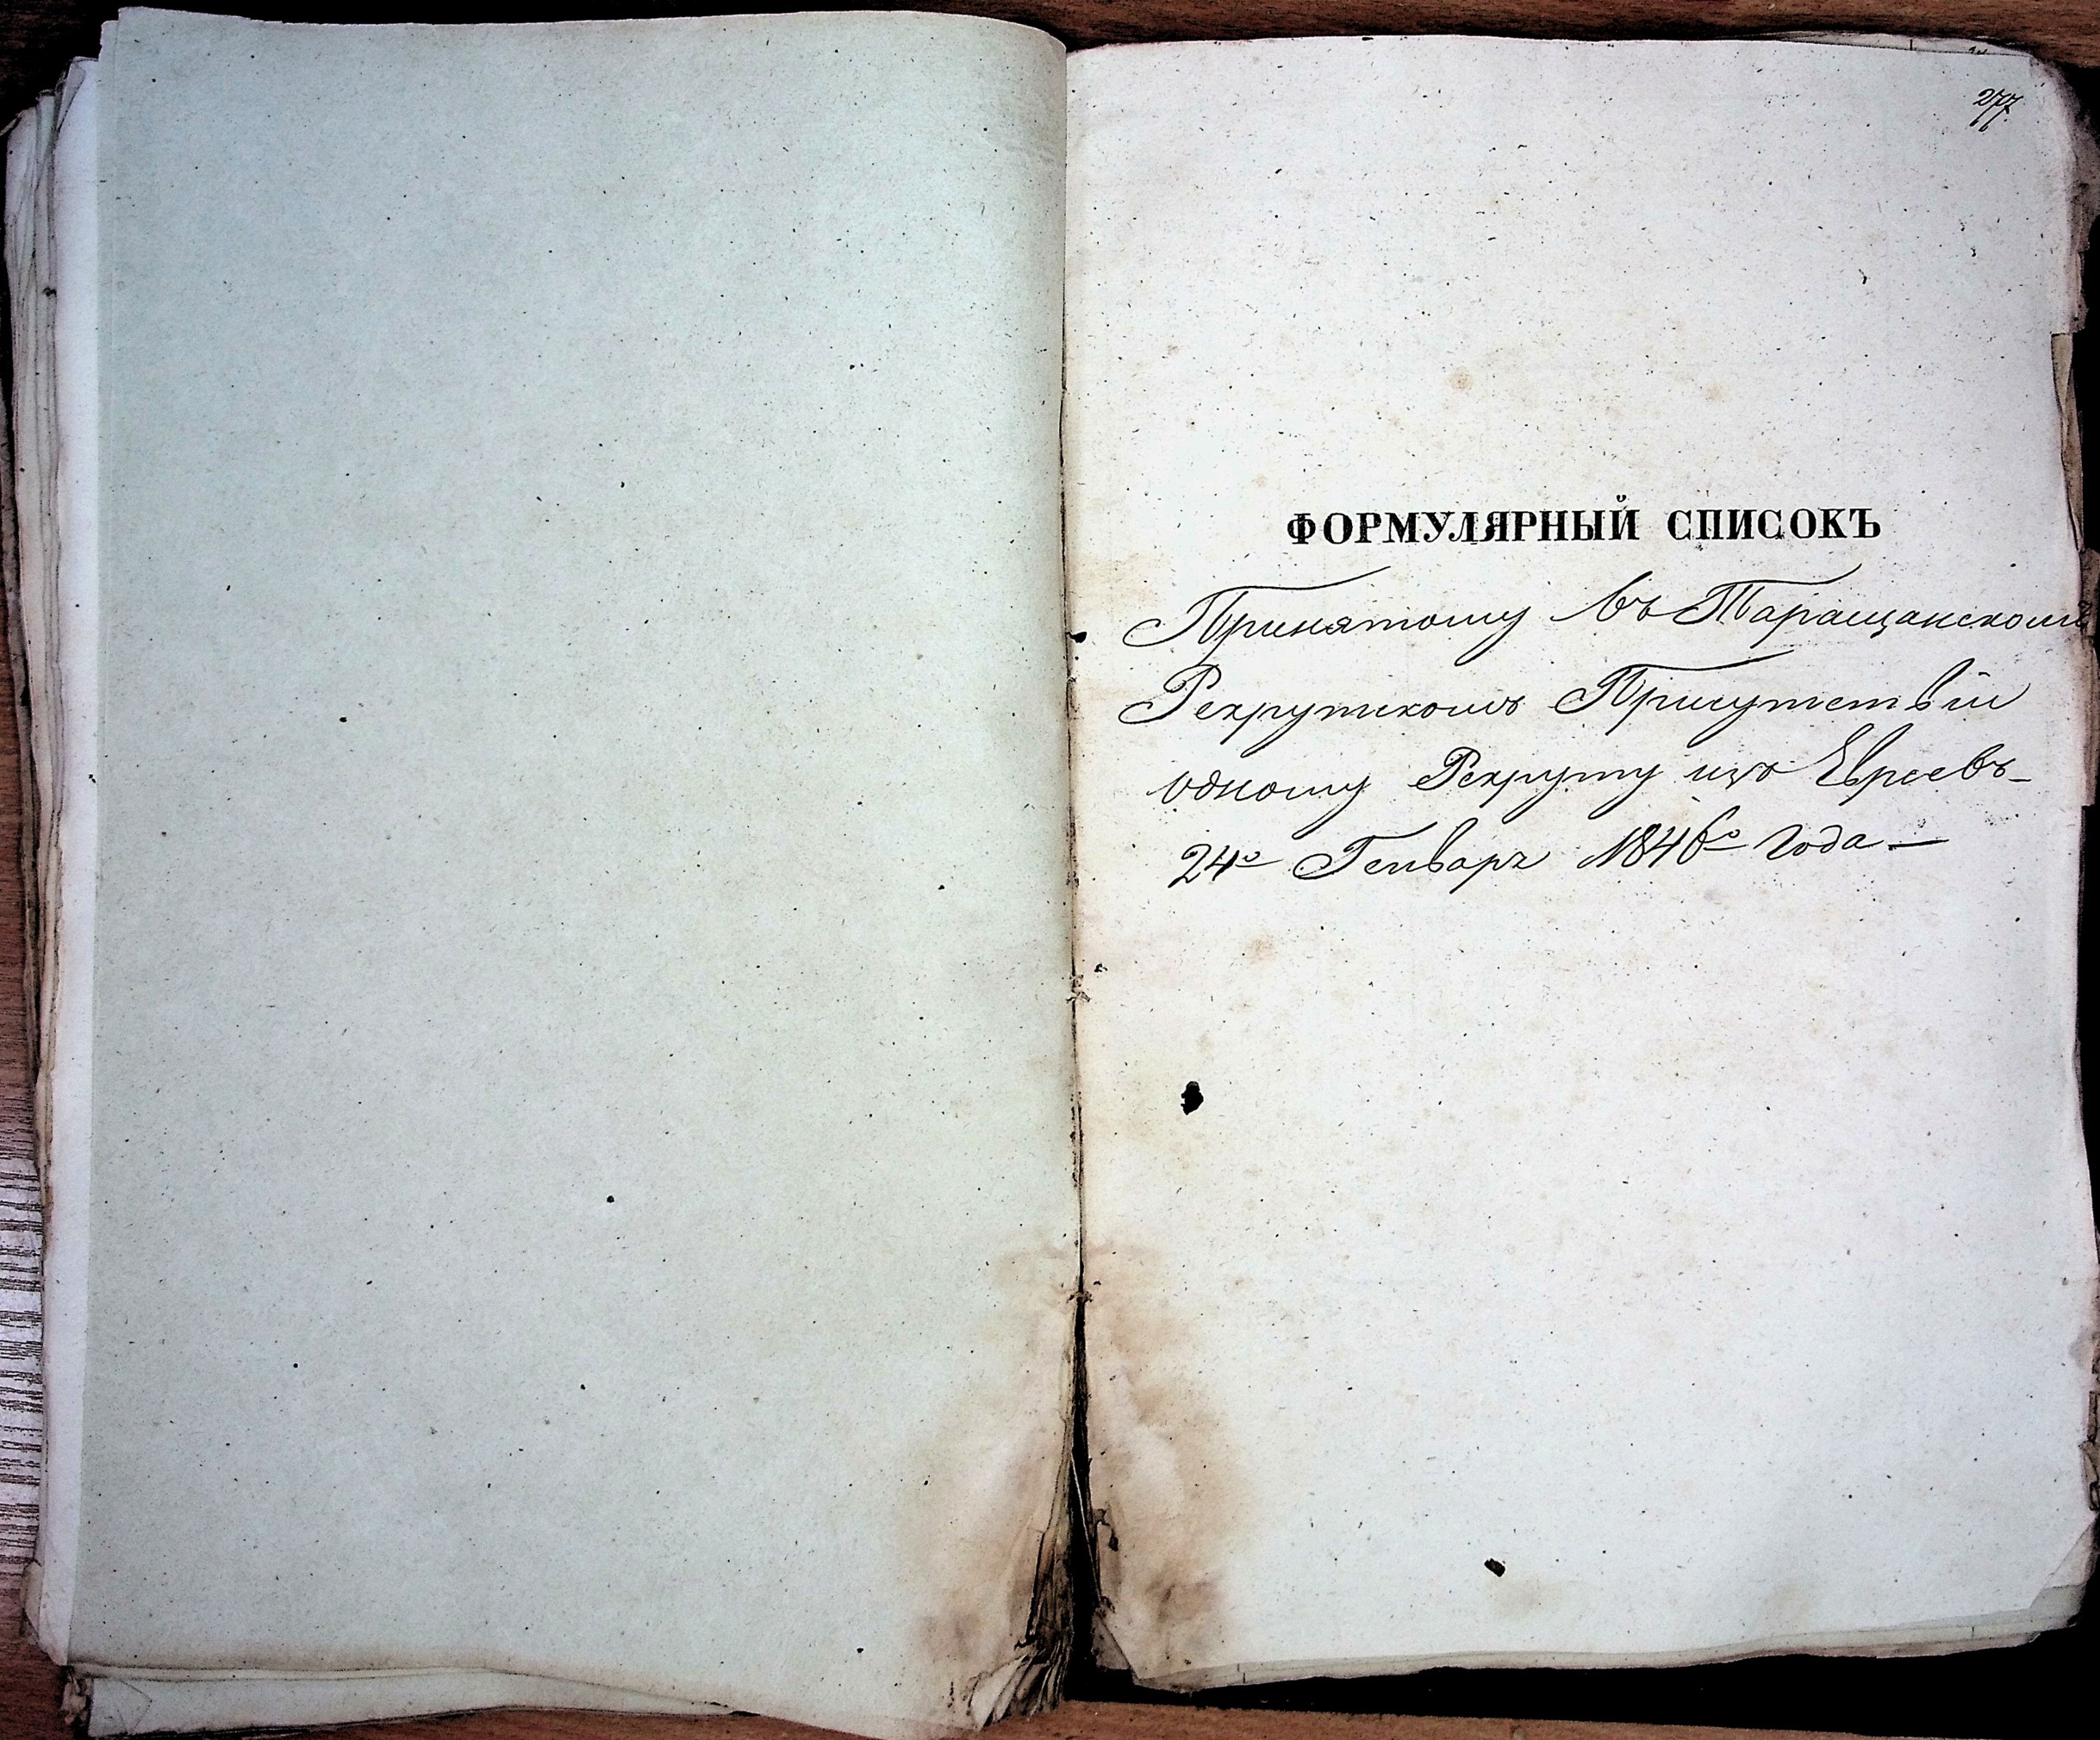 277
ФОРМУЛЯРНЫЙ СПИСОКЪ
Принятому въ Таращанскомъ
Рекрутскомъ Присутствіи
одному Рекруту изъ Евреевъ
24º Генваря 1846º года —